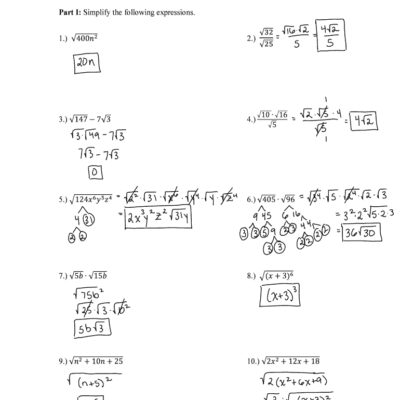 Part I: Simplify the following expressions.
1.) √400n²
20n
2.) √32/√25 = √16·√2/5 = 4√2/5
3.) √147 − 7√3
√3·√49 − 7√3
7√3 − 7√3
0
4.) √10·√16/√5 = √2·√5·4/√5 = 4√2
1
1
5.) √124x⁶y⁵z⁴ = √2²·√31·√x⁶·√y⁴·√y·√z⁴
= 2x³y²z²√31y
4 31
2 2
6.) √405·√96 = √3⁴·√5·√2⁴·√2·√3
= 3²·2²√5·2·3
= 36√30
9 45 6 16
3 3 5 9 2 3 4 4
3 3 2 2 2 2
7.) √5b·√15b
√75b²
√25·√3·√b²
5b√3
8.) √(x + 3)⁶
(x+3)³
9.) √n² + 10n + 25
√(n+5)²
10.) √2x² + 12x + 18
√2(x²+6x+9)